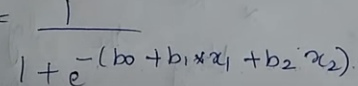 = 1 / 1 + e^-(b0 + b1*x1 + b2 x2).